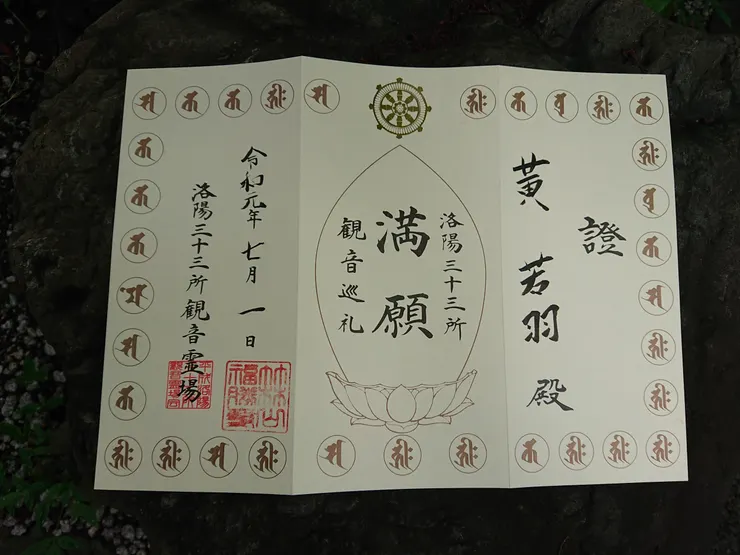 證
黄 若羽 殿
洛陽三十三所
満願
観音巡礼
令和元年 七月 一日
洛陽三十三所観音霊場